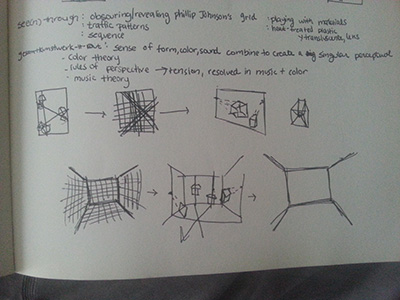 see(n) through : obscuring/revealing phillip Johnson's grid
: traffic patterns
: sequence
: playing with materials
: heat-treated plastic
translucents, lens
: sense of form, color, sound combine to create a singular perceptual
- color theory
- rules of perspective → tension, resolved in music + color
- music theory